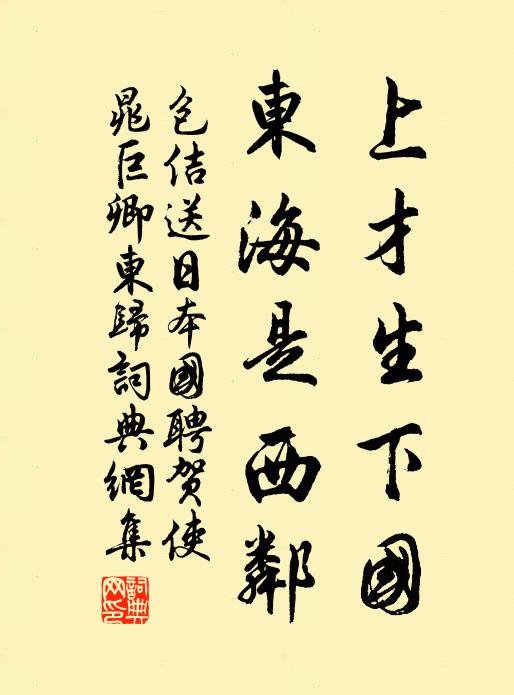 上才生下國
東海是西鄰
包佶送日本國聘賀使
晁巨卿東歸詞典網集
詞典
网印